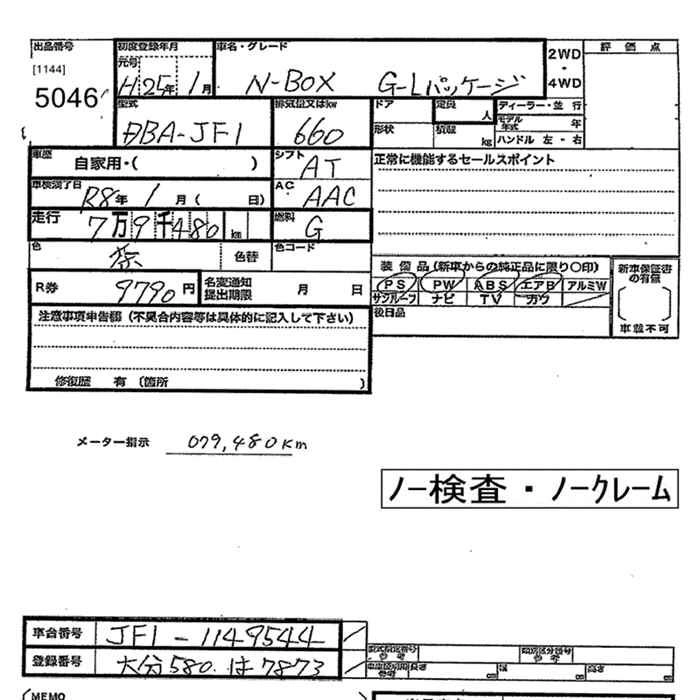 出品番号 初度登録年月 車名・グレード 2WD・4WD 評価点
[1144] 元号
5046 H.25年 1月 N-BOX G-Lパッケージ
型式 排気量又はkw ドア 定員 人 ディーラー・並行
DBA-JF1 660 形状 積載 kg モデル年式 年
ハンドル 左・右
車歴 自家用・( ) シフト AT 正常に機能するセールスポイント
車検満了日 R8年 1月( 日) AC AAC
走行 7万9千480 km 燃料 G
色 茶 色替 色コード 装備品(新車からの純正品に限り○印) 新車保証書の有無
R券 9790円 名変通知提出期限 月 日 PS PW ABS エアB アルミW
サンルーフ ナビ TV カワ
車載不可
注意事項申告欄(不具合内容等は具体的に記入して下さい) 後日品
修復歴 有(箇所 )
メーター指示 079,480Km
ノー検査・ノークレーム
車台番号 JF1-1149544
登録番号 大分580.は7873
長さ cm 幅 cm 高さ cm
MEMO